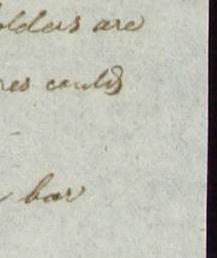 olders are
res could
bar